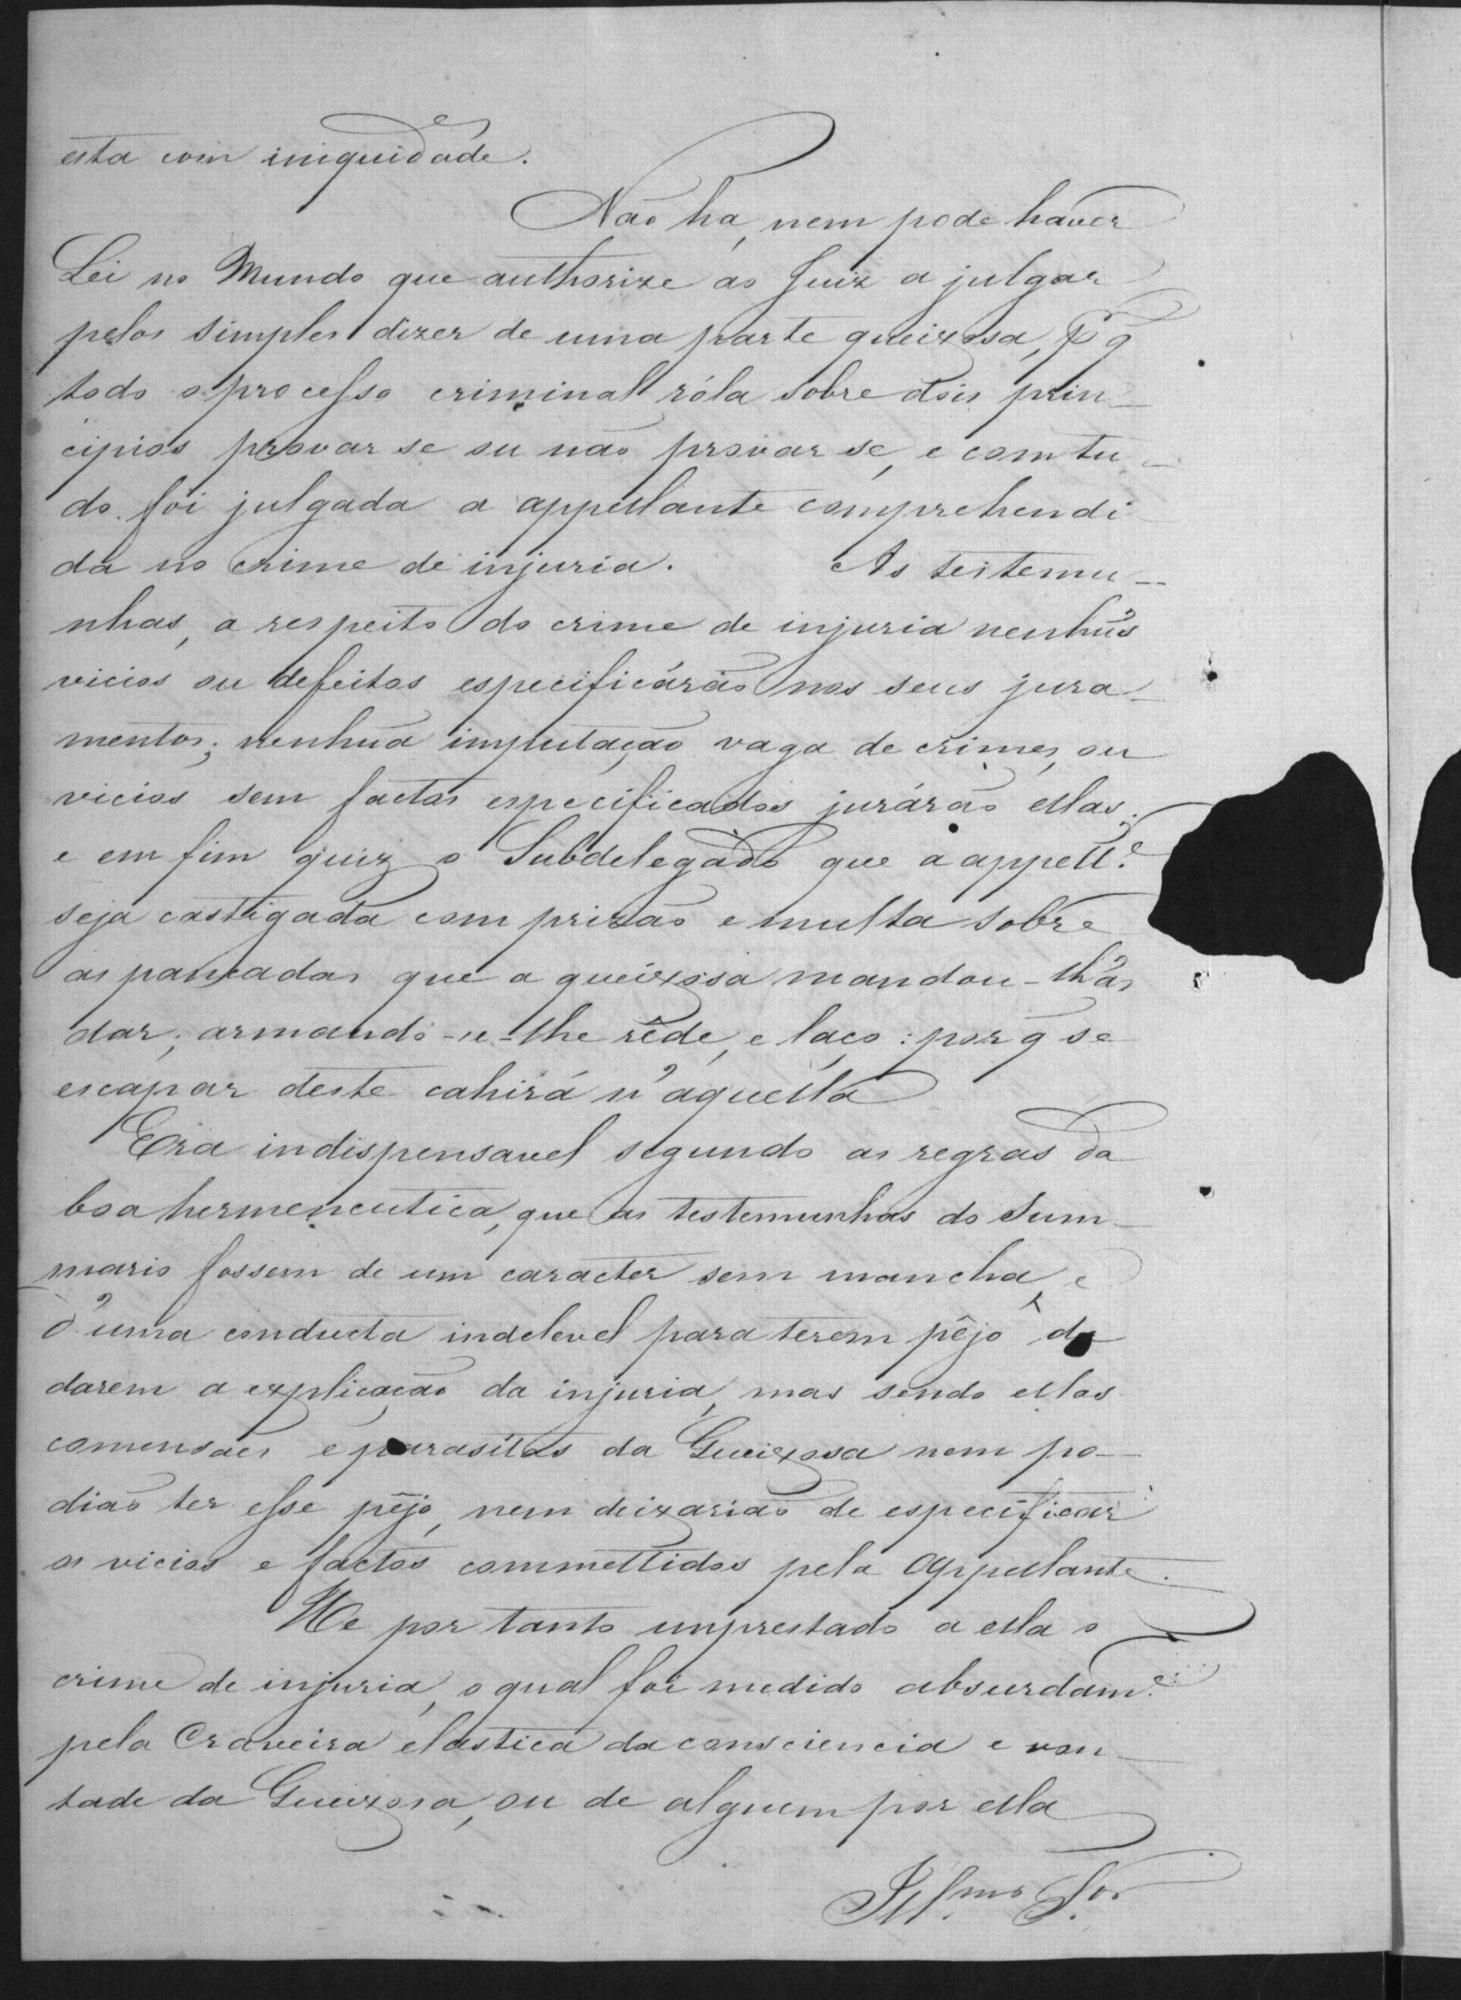 esta com iniquidade.
Não ha, nem pode haver
Lei no Mundo que authorize ao Juiz a julgar
pelos simples dizer de uma parte queixosa, p q̃
todo o processo criminal róla sobre dois prin-
cipios provar se ou não provar se, e com tu-
do foi julgada a appellante comprehendi
da no crime de injuria. As testemu-
nhas, a respeito do crime de injuria nenhũs
vicios ou defeitos especificárão nos seus jura-
mentos; nenhũa imputação vaga de crimes, ou
vicios sem factos especificados jurárão ellas;
e em fim quiz o Subdelegado que a appell.e
seja castigada com prizão e multa sobre
as pancadas que a queixosa mandou-lh'as
dar; armando-se-lhe rêde, e laço: por q̃ se
escapar deste cahirá n'aquella
Era indispensavel segundo as regras da
boa hermeneutica, que as testemunhas do Sum-
mario fossem de um caracter sem mancha, e
d'uma conducta indelevel para terem pêjo de
darem a explicação da injuria, mas sendo ellas
comensáes e parasitas da Queixosa nem po-
dião ter esse pêjo, nem deixarião de especificar
os vicios e factos commettidos pela Appellante.
He por tanto emprestado a ella o
crime de injuria, o qual foi medido absurdam.e
pela Craveira elastica da consciencia e von-
tade da Queixosa, ou de alguem por ella
Ill.mo Sr.